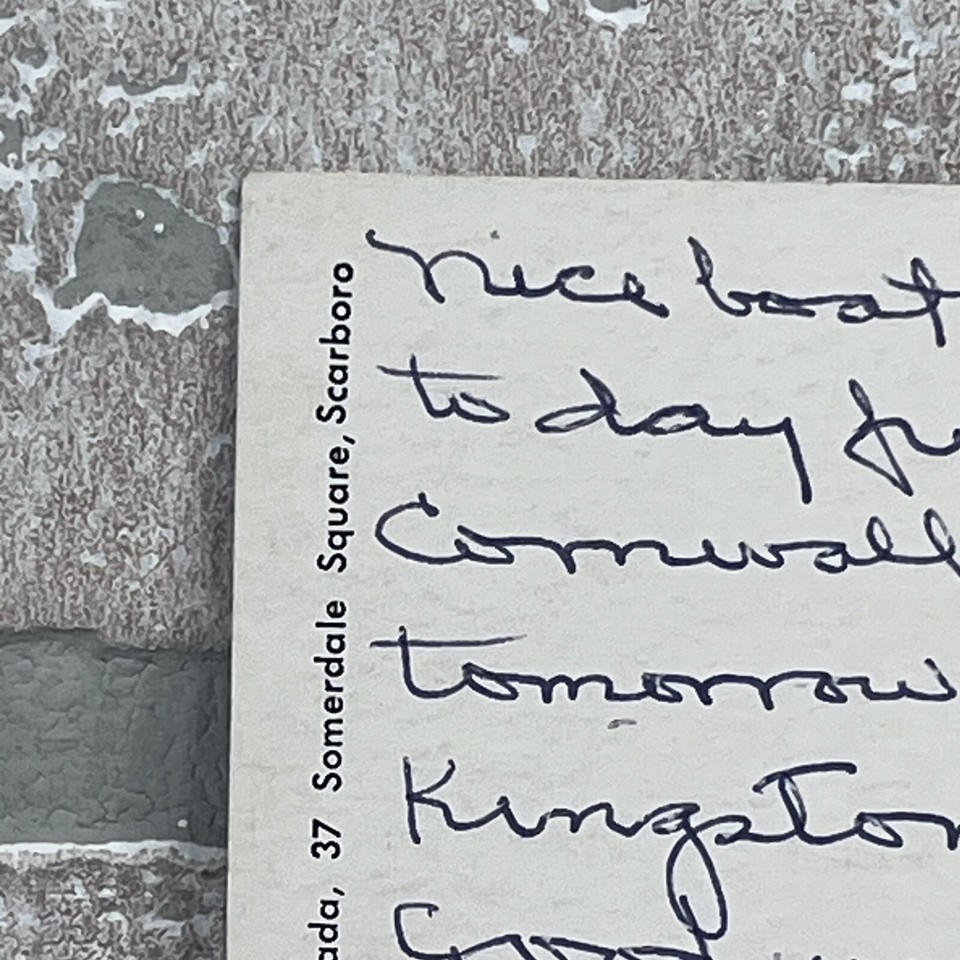 Nice boat
to day
Cornwall
tomorrow
Kingston
Good
ada, 37 Somerdale Square, Scarboro